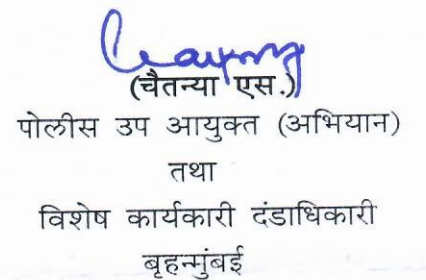 (चैतन्या एस.)
पोलीस उप आयुक्त (अभियान)
तथा
विशेष कार्यकारी दंडाधिकारी
बृहन्मुंबई